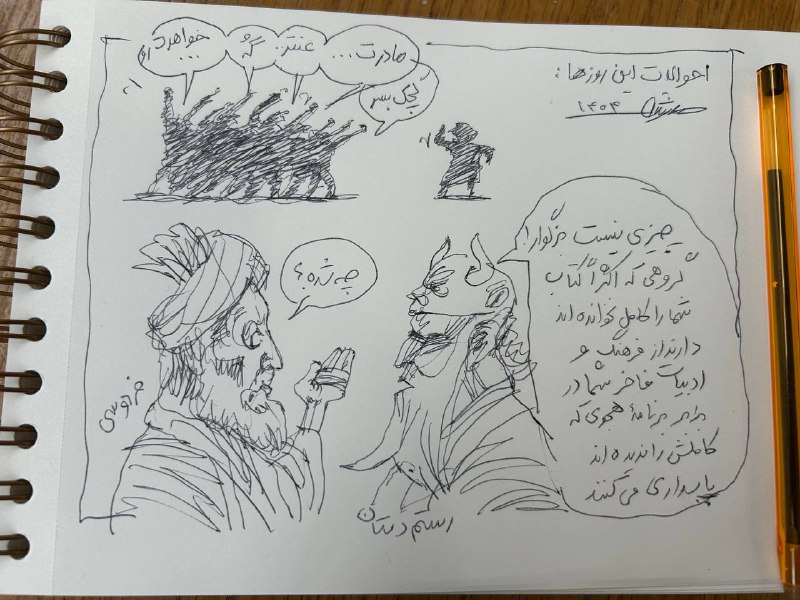 احوالات این روزها:
۱۴۰۴
مادرت...
عنتر.
گُ
خواهرت رو
...
کچک بسر
چی شده؟
چیزی نیست بزرگوار!
گروهی که اکثراً کتاب
شما را کامل نخوانده اند
دارند از فرهنگ و
ادبیات فاخر شما در
برابر برنامهٔ هجوی که
کاملش را ندیده اند
پاسداری می کنند
فردوسی
رستم دستان